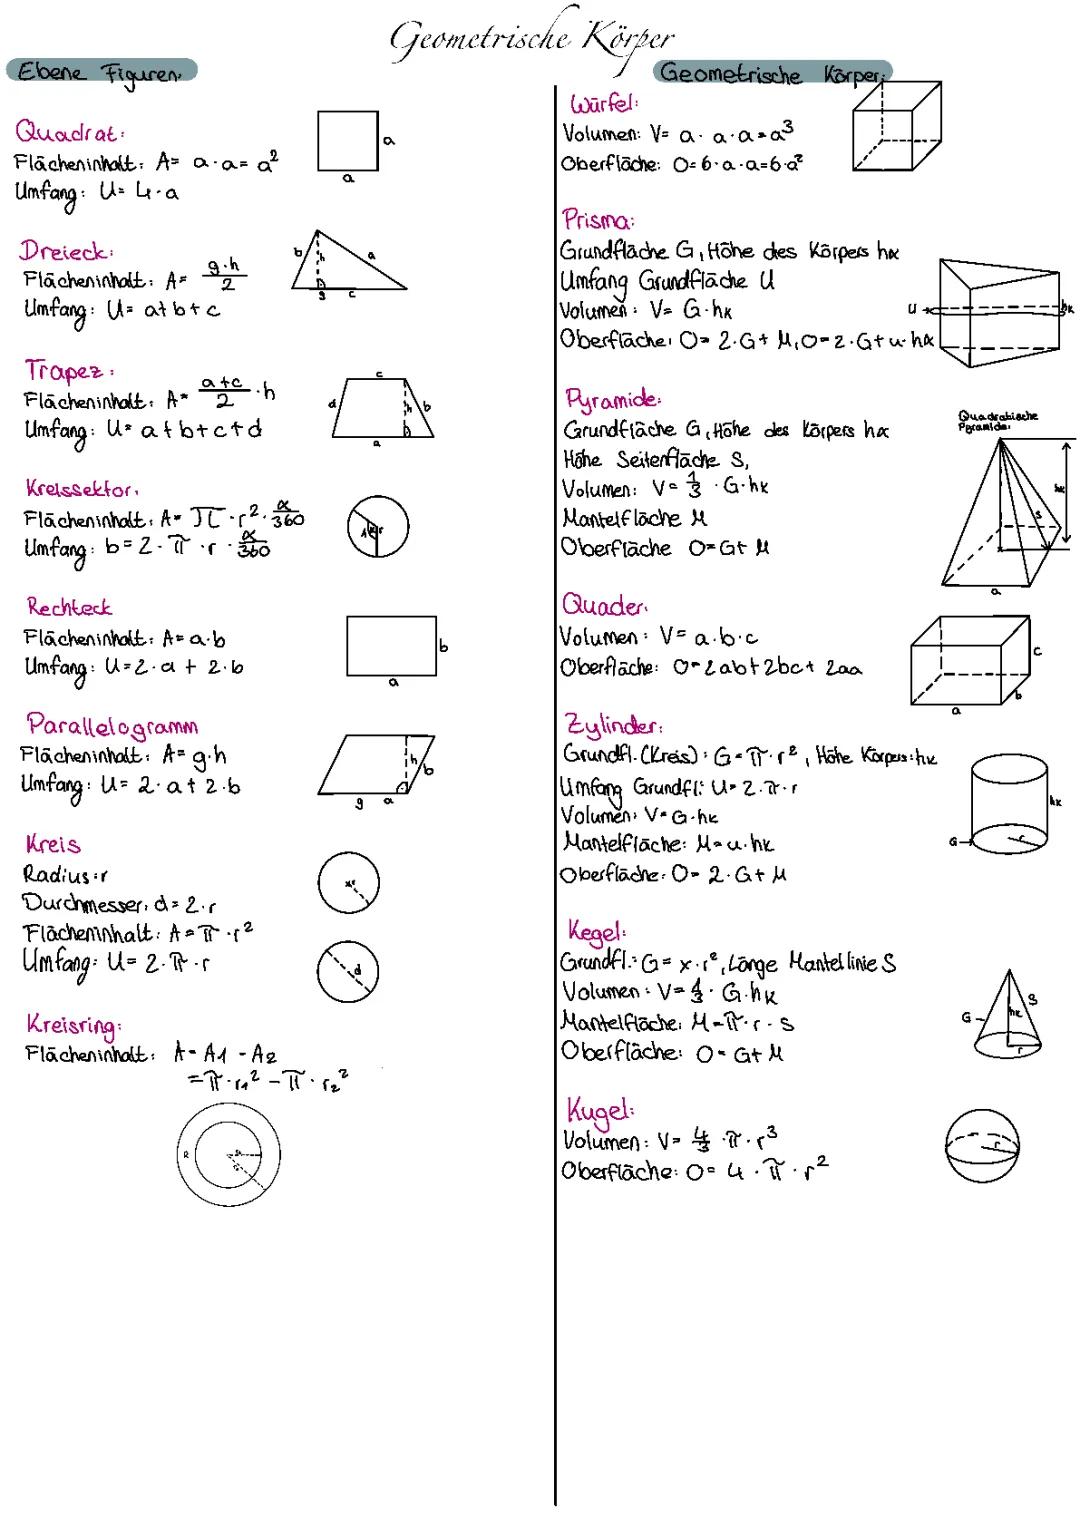 Geometrische Körper
Ebene Figuren:
Quadrat:
Flächeninhalt: A= a·a= a²
Umfang: U= 4·a
a
a
Dreieck:
Flächeninhalt: A= g·h/2
Umfang: U= a+b+c
b
h
a
g
c
Trapez:
Flächeninhalt: A= a+c/2 ·h
Umfang: U= a+b+c+d
c
d
h
b
a
Kreissektor:
Flächeninhalt: A= π·r²·α/360
Umfang: b=2·π·r·α/360
r
Rechteck
Flächeninhalt: A=a·b
Umfang: U=2·a + 2·b
b
a
Parallelogramm
Flächeninhalt: A= g·h
Umfang: U= 2·a+2·b
h
b
g
a
Kreis
Radius: r
Durchmesser: d=2·r
Flächeninhalt: A=π·r²
Umfang: U= 2·π·r
r
d
Kreisring:
Flächeninhalt: A=A1 -A2
=π·r₁² -π·r₂²
R
Geometrische Körper:
Würfel:
Volumen: V= a·a·a=a³
Oberfläche: O=6·a·a=6·a²
Prisma:
Grundfläche G, Höhe des Körpers hk
Umfang Grundfläche U
Volumen: V= G·hk
Oberfläche: O= 2·G+ M, O=2·G+u·hk
U
hk
Pyramide:
Grundfläche G, Höhe des Körpers hk
Höhe Seitenfläche S,
Volumen: V= 1/3 ·G·hk
Mantelfläche M
Oberfläche O=G+ M
Quadratische
Pyramide:
hk
s
a
Quader:
Volumen: V= a·b·c
Oberfläche: O=2ab+2bc+ 2aa
c
b
a
Zylinder:
Grundfl. (Kreis): G=π·r², Höhe Körpers: hk
Umfang Grundfl: U=2·π·r
Volumen: V=G·hk
Mantelfläche: M=u·hk
Oberfläche: O= 2·G+ M
hk
G
r
Kegel:
Grundfl.: G= x·r², Länge Mantellinie S
Volumen: V= 1/3· G·hk
Mantelfläche: M=π·r·s
Oberfläche: O= G+ M
S
hk
G
r
Kugel:
Volumen: V= 4/3 ·π·r³
Oberfläche: O= 4·π·r²
r